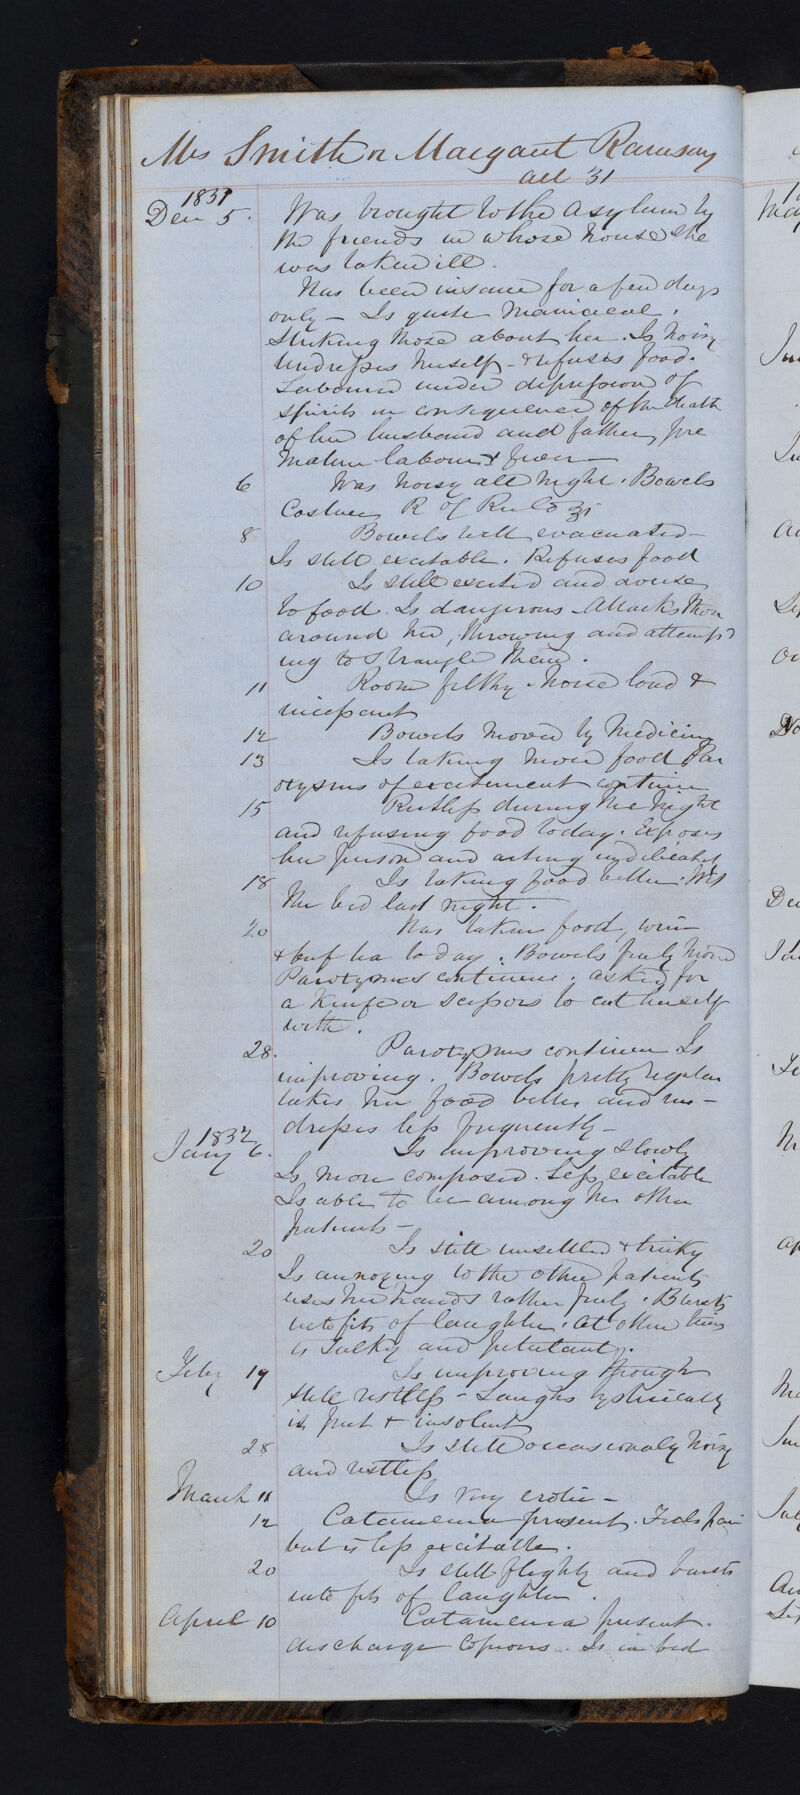 Mrs Smith or Margaret Ramsay
aet 31
1831
Dec 5. Was brought to the Asylum by
the friends in whose house she
was taken ill.
Has been insane for a few days
only – Is quite maniacal,
striking those about her. Is noisy
undresses herself – & refuses food.
Laboured under depression of
spirits in consequence of the death
of her husband and father, pre
mature labour & fever –
6 Was noisy all night. Bowels
Costive, R Ol Ricini ℥i
8 Bowels well evacuated –
Is still excitable. Refuses food
10 Is still excited and averse
to food. Is dangerous – Attacks those
around her, throwing and attempt
ing to strangle them.
11 Room filthy – noise loud &
incessant
12 Bowels moved by Medicine
13 Is taking more food Par
oxysms of excitement continue
15 Restless during the night
and refusing food today. Exposes
her person and acting indelicately
18 Is taking food better. Wet
the bed last night.
20 Has taken food, wine
& beef tea to day. Bowels freely moved
Paroxysms continue. asked for
a Knife or scissors to cut herself
with.
28. Paroxysms continue Is
improving. Bowels pretty regular
takes her food better and un–
dresses less frequently –
1832
Jany 6. Is improving slowly
Is more composed. Less excitable
Is able to be among the other
patients –
20 Is still unsettled & tricky
Is annoying to the other patients
uses her hands rather freely. Bursts
into fits of laughter. at other times
is sulky and petulant.
Feby 19 Is improving though
still restless – Laughs hysterically
is pert & insolent
28 Is still occasionaly noisy
and restless
March 11 Is very erotic –
12 Catamenia present. Feels pain
but is less excitable.
20 Is still flighty and bursts
into fits of laughter.
April 10 Catamenia present.
discharge copious. Is in bed